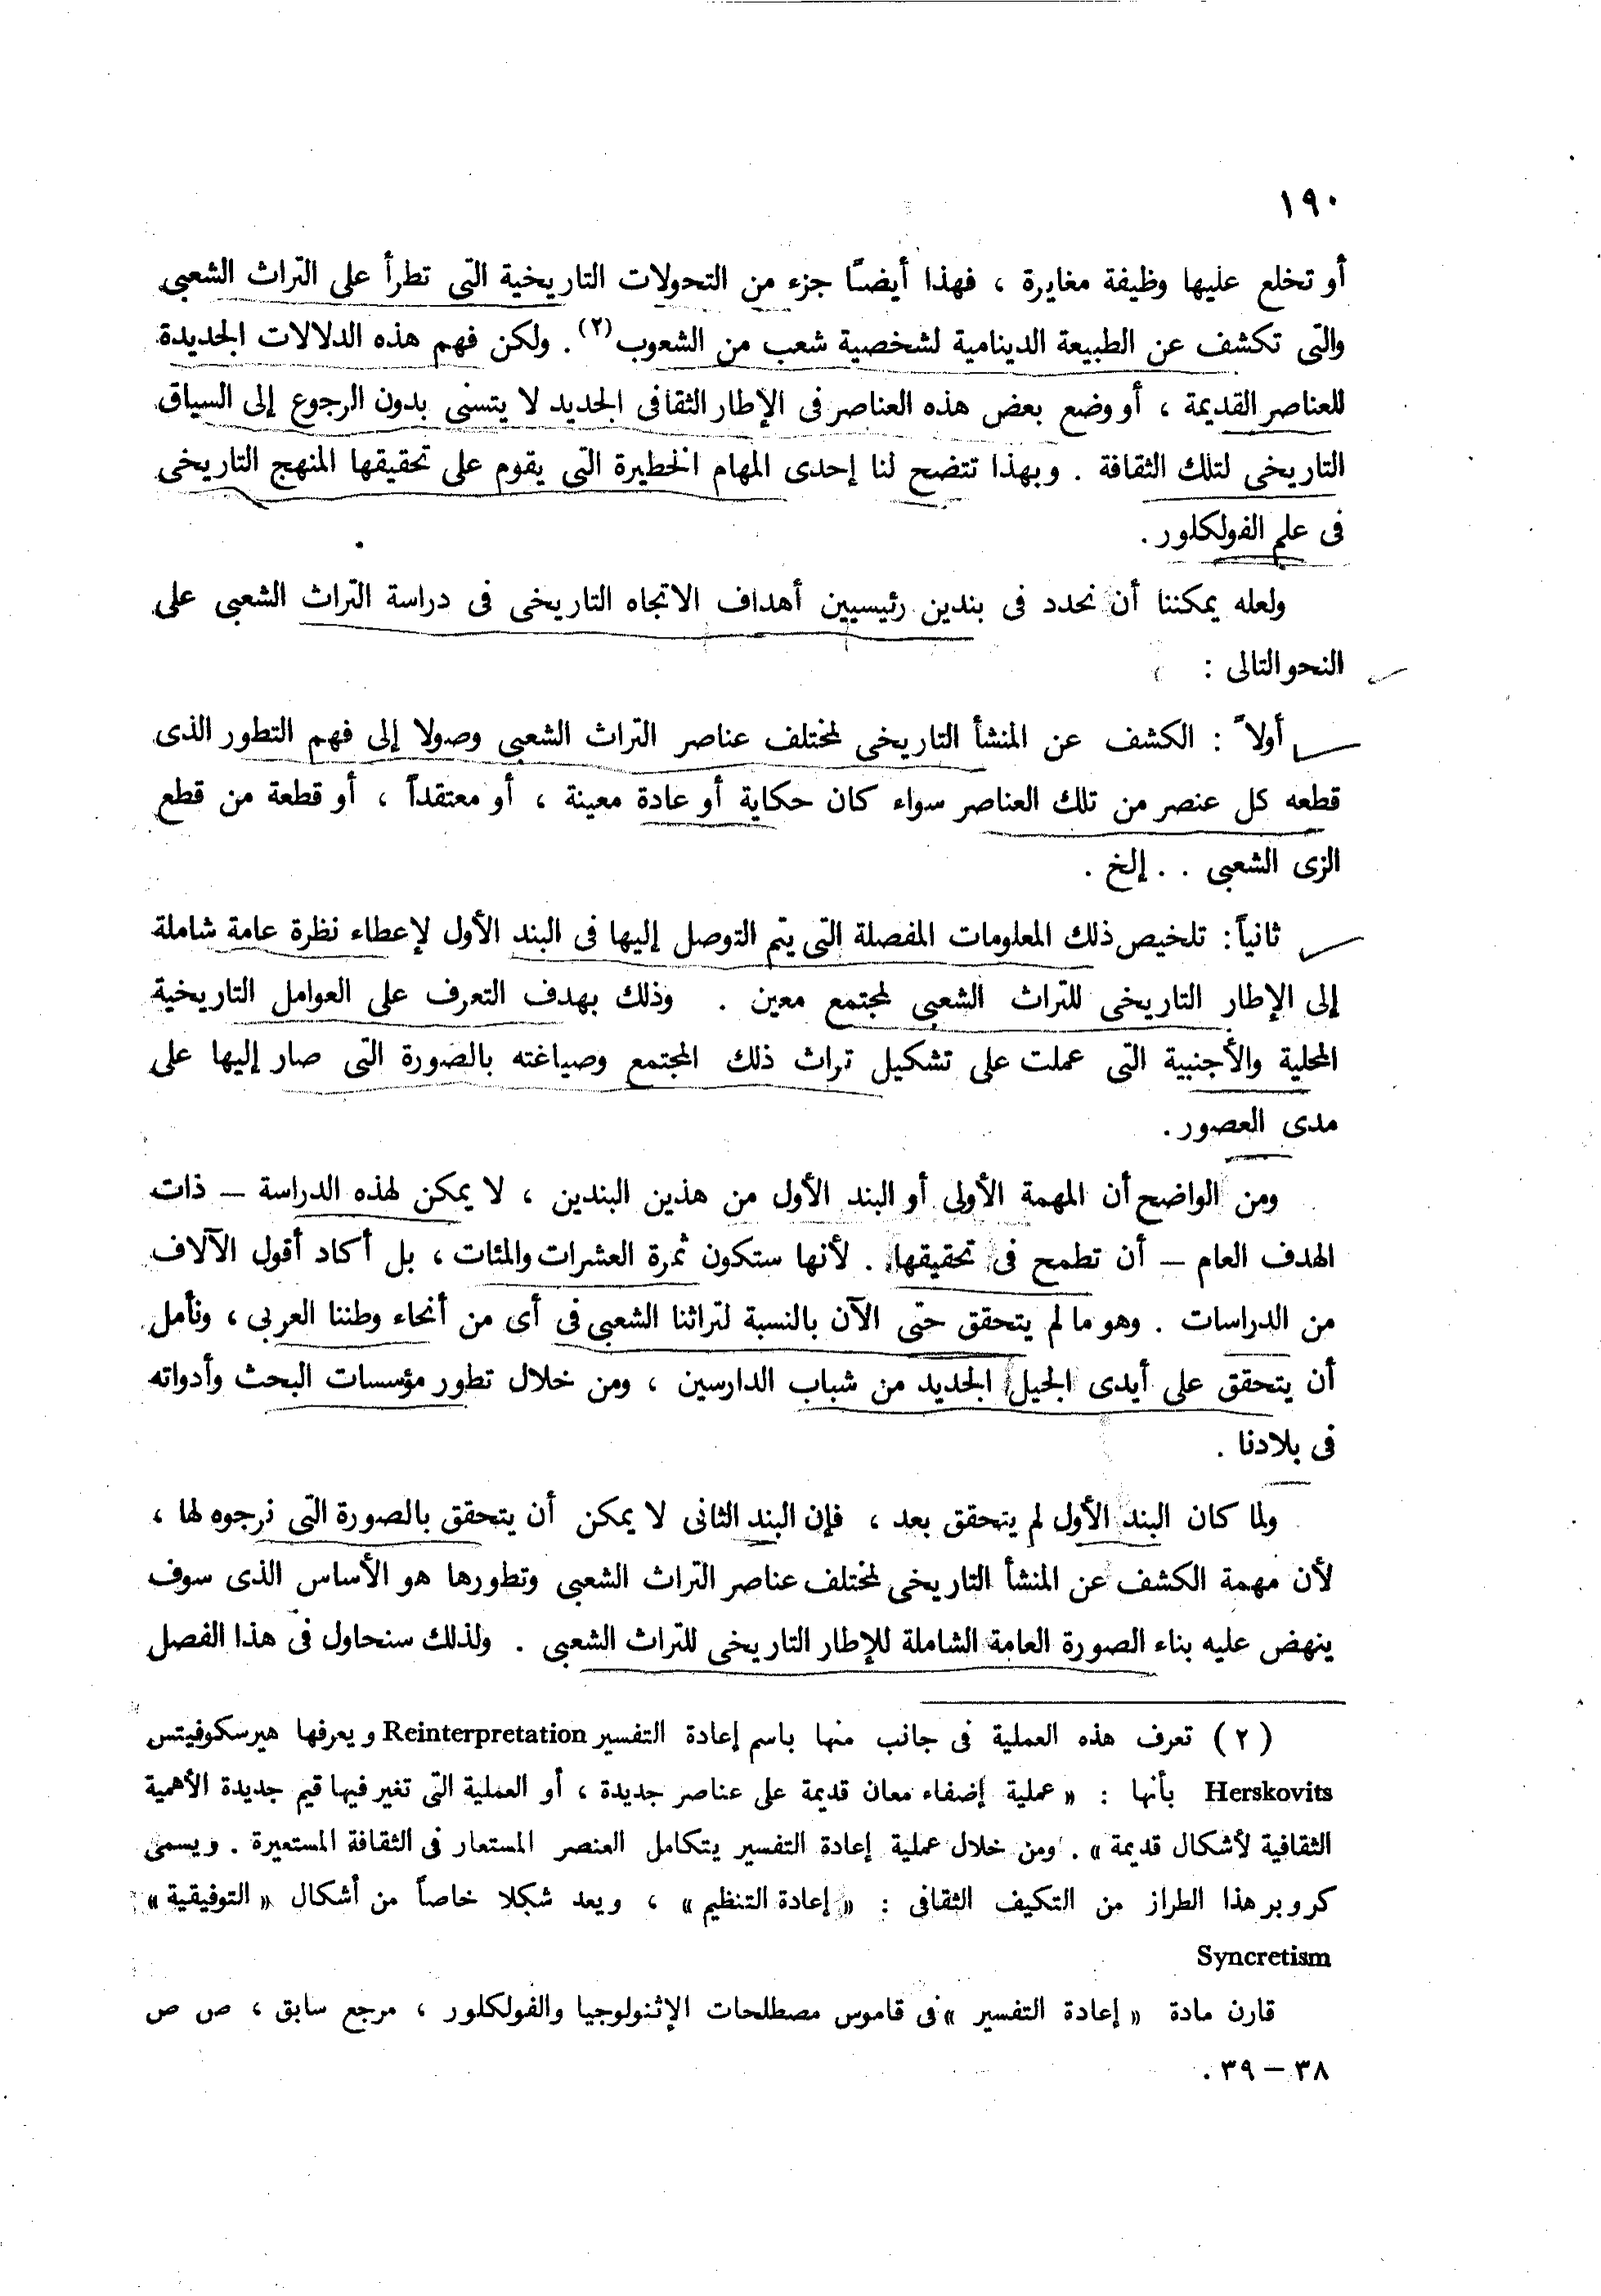 ١٩٠
أو تخلع عليها وظيفة مغايرة ، فهذا أيضاً جزء من التحولات التاريخية التى تطرأ على التراث الشعبى
والتى تكشف عن الطبيعة الدينامية لشخصية شعب من الشعوب(٢) . ولكن فهم هذه الدلالات الجديدة
للعناصر القديمة ، أو وضع بعض هذه العناصر فى الإطار الثقافى الجديد لا يتسنى بدون الرجوع إلى السياق
التاريخى لتلك الثقافة . وبهذا تتضح لنا إحدى المهام الخطيرة التى يقوم على تحقيقها المنهج التاريخى
فى علم الفولكلور .
ولعله يمكننا أن نحدد فى بندين رئيسيين أهداف الاتجاه التاريخى فى دراسة التراث الشعبى على
النحو التالى :
أولاً : الكشف عن المنشأ التاريخى لمختلف عناصر التراث الشعبى وصولا إلى فهم التطور الذى
قطعه كل عنصر من تلك العناصر سواء كان حكاية أو عادة معينة ، أو معتقداً ، أو قطعة من قطع
الزى الشعبى . . إلخ .
ثانياً : تلخيص ذلك المعلومات المفصلة التى يتم التوصل إليها فى البند الأول لإعطاء نظرة عامة شاملة
إلى الإطار التاريخى للتراث الشعبى لمجتمع معين . وذلك بهدف التعرف على العوامل التاريخية
المحلية والأجنبية التى عملت على تشكيل تراث ذلك المجتمع وصياغته بالصورة التى صار إليها على
مدى العصور .
ومن الواضح أن المهمة الأولى أو البند الأول من هذين البندين ، لا يمكن لهذه الدراسة – ذات
الهدف العام – أن تطمح فى تحقيقها . لأنها ستكون ثمرة العشرات والمئات ، بل أكاد أقول الآلاف
من الدراسات . وهو ما لم يتحقق حتى الآن بالنسبة لتراثنا الشعبى فى أى من أنحاء وطننا العربى ، ونأمل
أن يتحقق على أيدى الجيل الجديد من شباب الدارسين ، ومن خلال تطور مؤسسات البحث وأدواته
فى بلادنا .
ولما كان البند الأول لم يتحقق بعد ، فإن البند الثانى لا يمكن أن يتحقق بالصورة التى نرجوه لها ،
لأن مهمة الكشف عن المنشأ التاريخى لمختلف عناصر التراث الشعبى وتطورها هو الأساس الذى سوف
ينهض عليه بناء الصورة العامة الشاملة للإطار التاريخى للتراث الشعبى . ولذلك سنحاول فى هذا الفصل
( ٢ ) تعرف هذه العملية فى جانب منها باسم إعادة التفسير Reinterpretation ويعرفها هيرسكوفيتس
Herskovits بأنها : « عملية إضفاء معان قديمة على عناصر جديدة ، أو العملية التى تغير فيها قيم جديدة الأهمية
الثقافية لأشكال قديمة » . ومن خلال عملية إعادة التفسير يتكامل العنصر المستعار فى الثقافة المستعيرة . ويسمى
كروبر هذا الطراز من التكيف الثقافى : « إعادة التنظيم » ، ويعد شكلا خاصاً من أشكال « التوفيقية »
Syncretism
قارن مادة « إعادة التفسير » فى قاموس مصطلحات الإثنولوجيا والفولكلور ، مرجع سابق ، ص ص
٣٨ – ٣٩ .